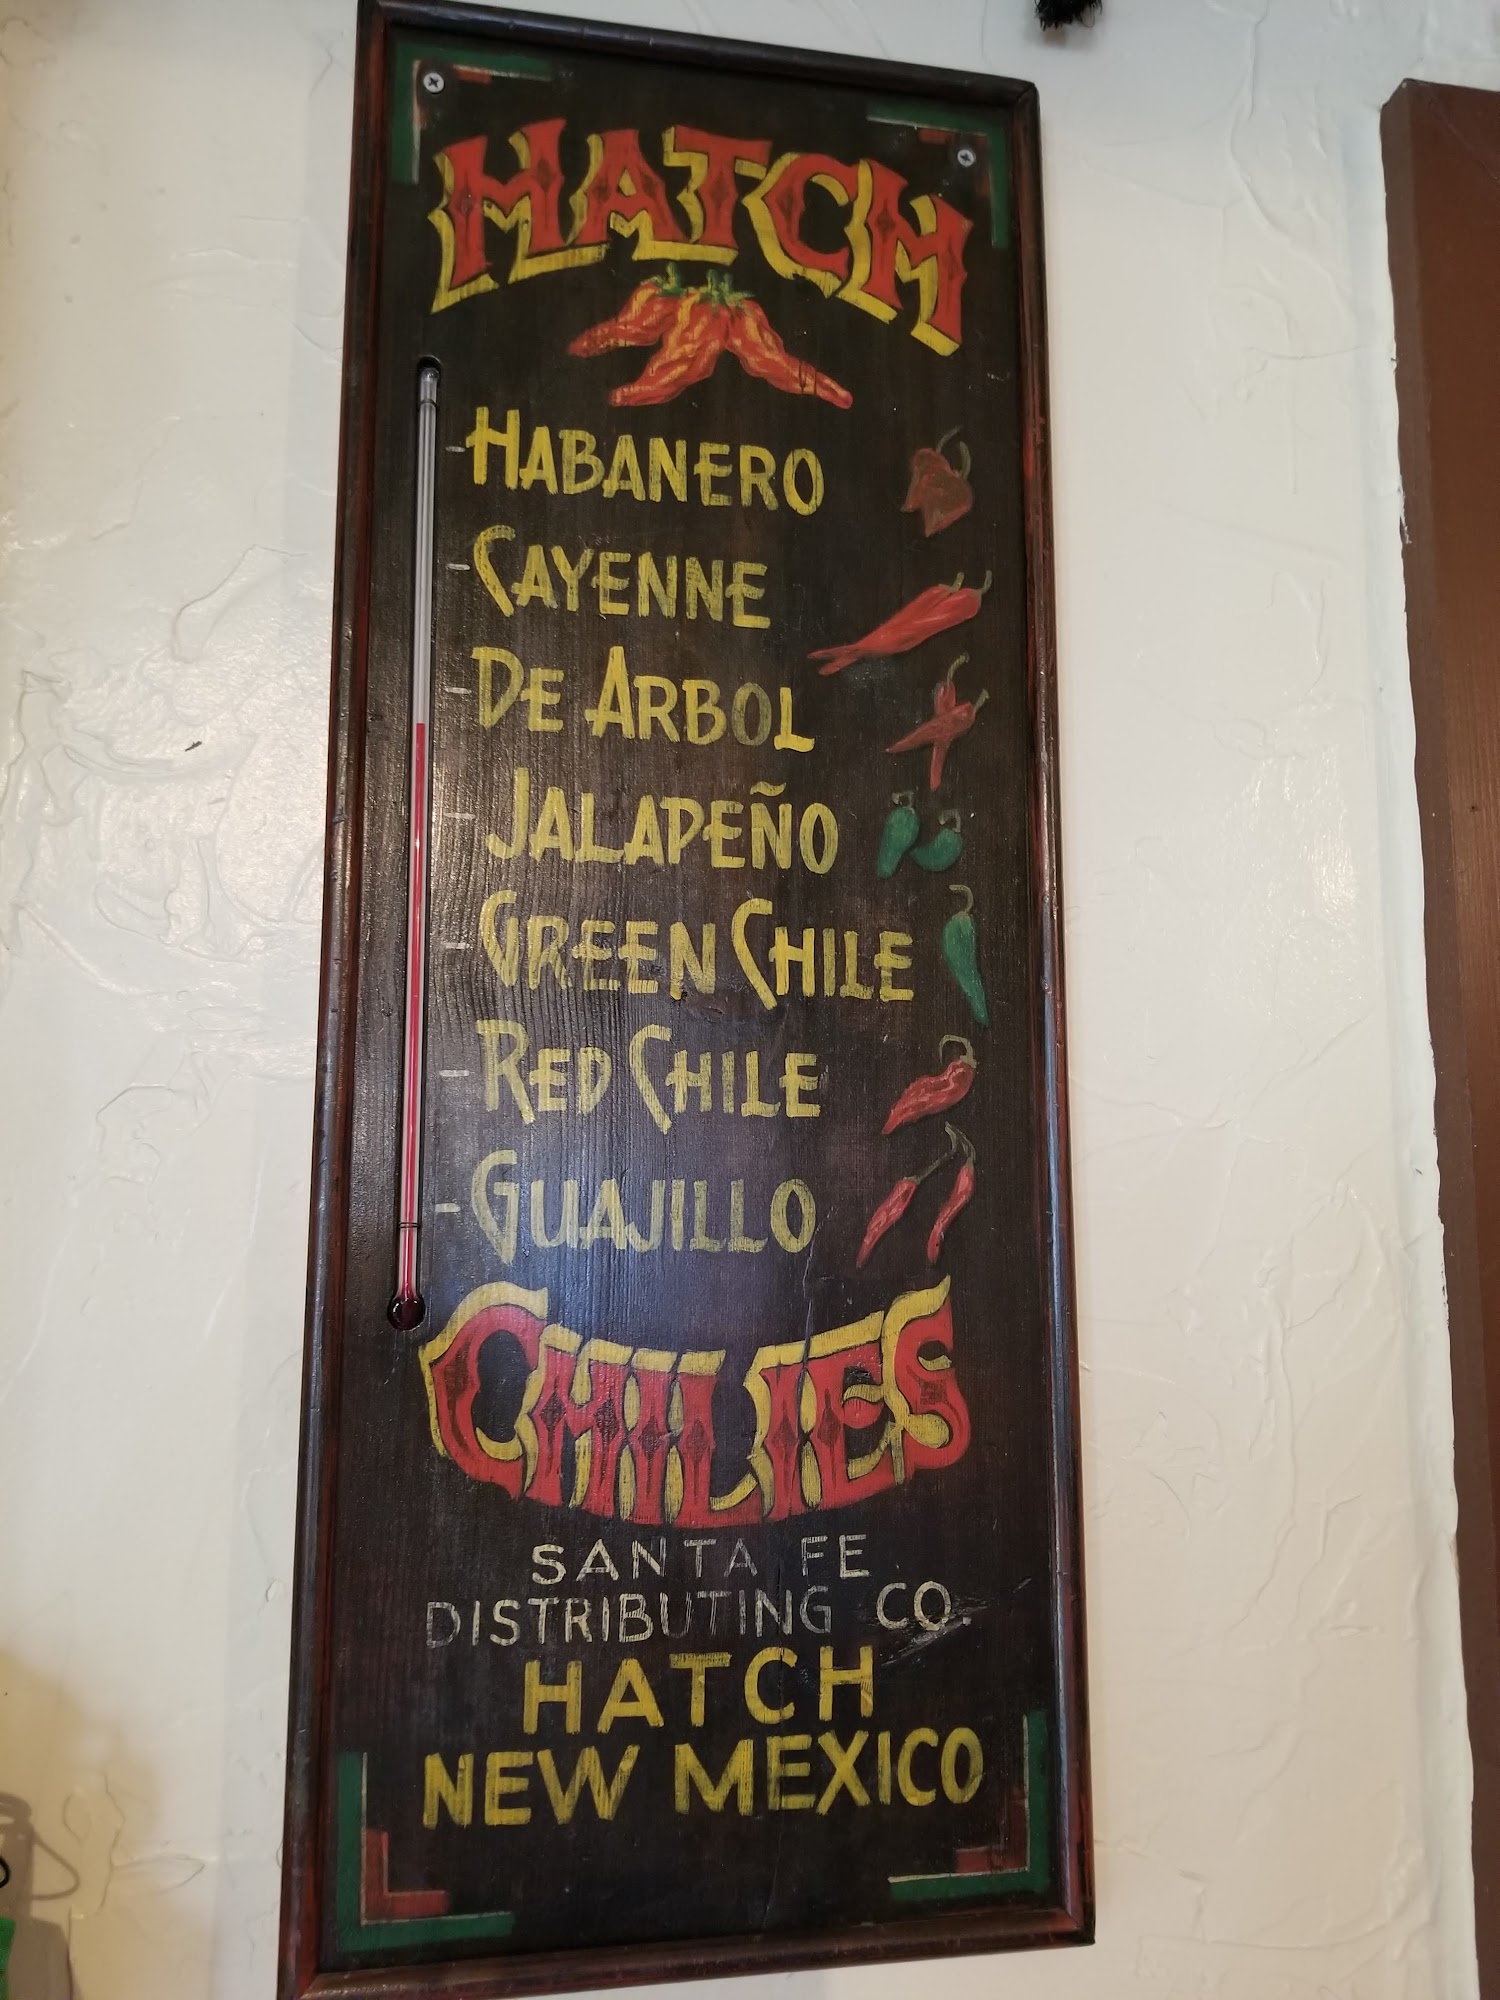 HATCH
HABANERO
CAYENNE
DE ARBOL
JALAPEÑO
GREEN CHILE
RED CHILE
GUAJILLO
CHILIES
SANTA FE
DISTRIBUTING CO.
HATCH
NEW MEXICO